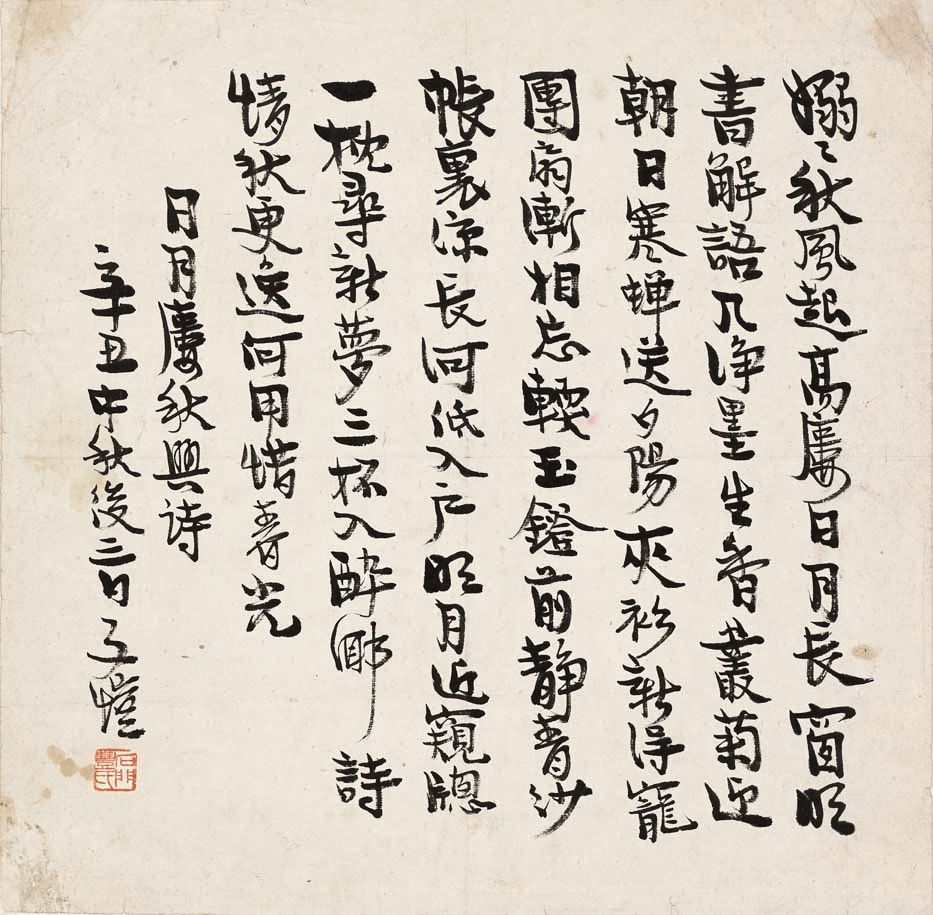 嫋〻秋風起高廔日月長窗明
書解語几淨墨生香叢菊迎
朝日寒蟬送夕陽夾衫新得寵
團扇漸相忘輭玉鐙前靜青紗
帳裏涼長河低入戶明月近窺牕
一枕尋新夢三杯入醉鄉詩
情秋更逸何用惜春光
日月廔秋興詩
辛丑中秋後三日子愷
石門豐氏